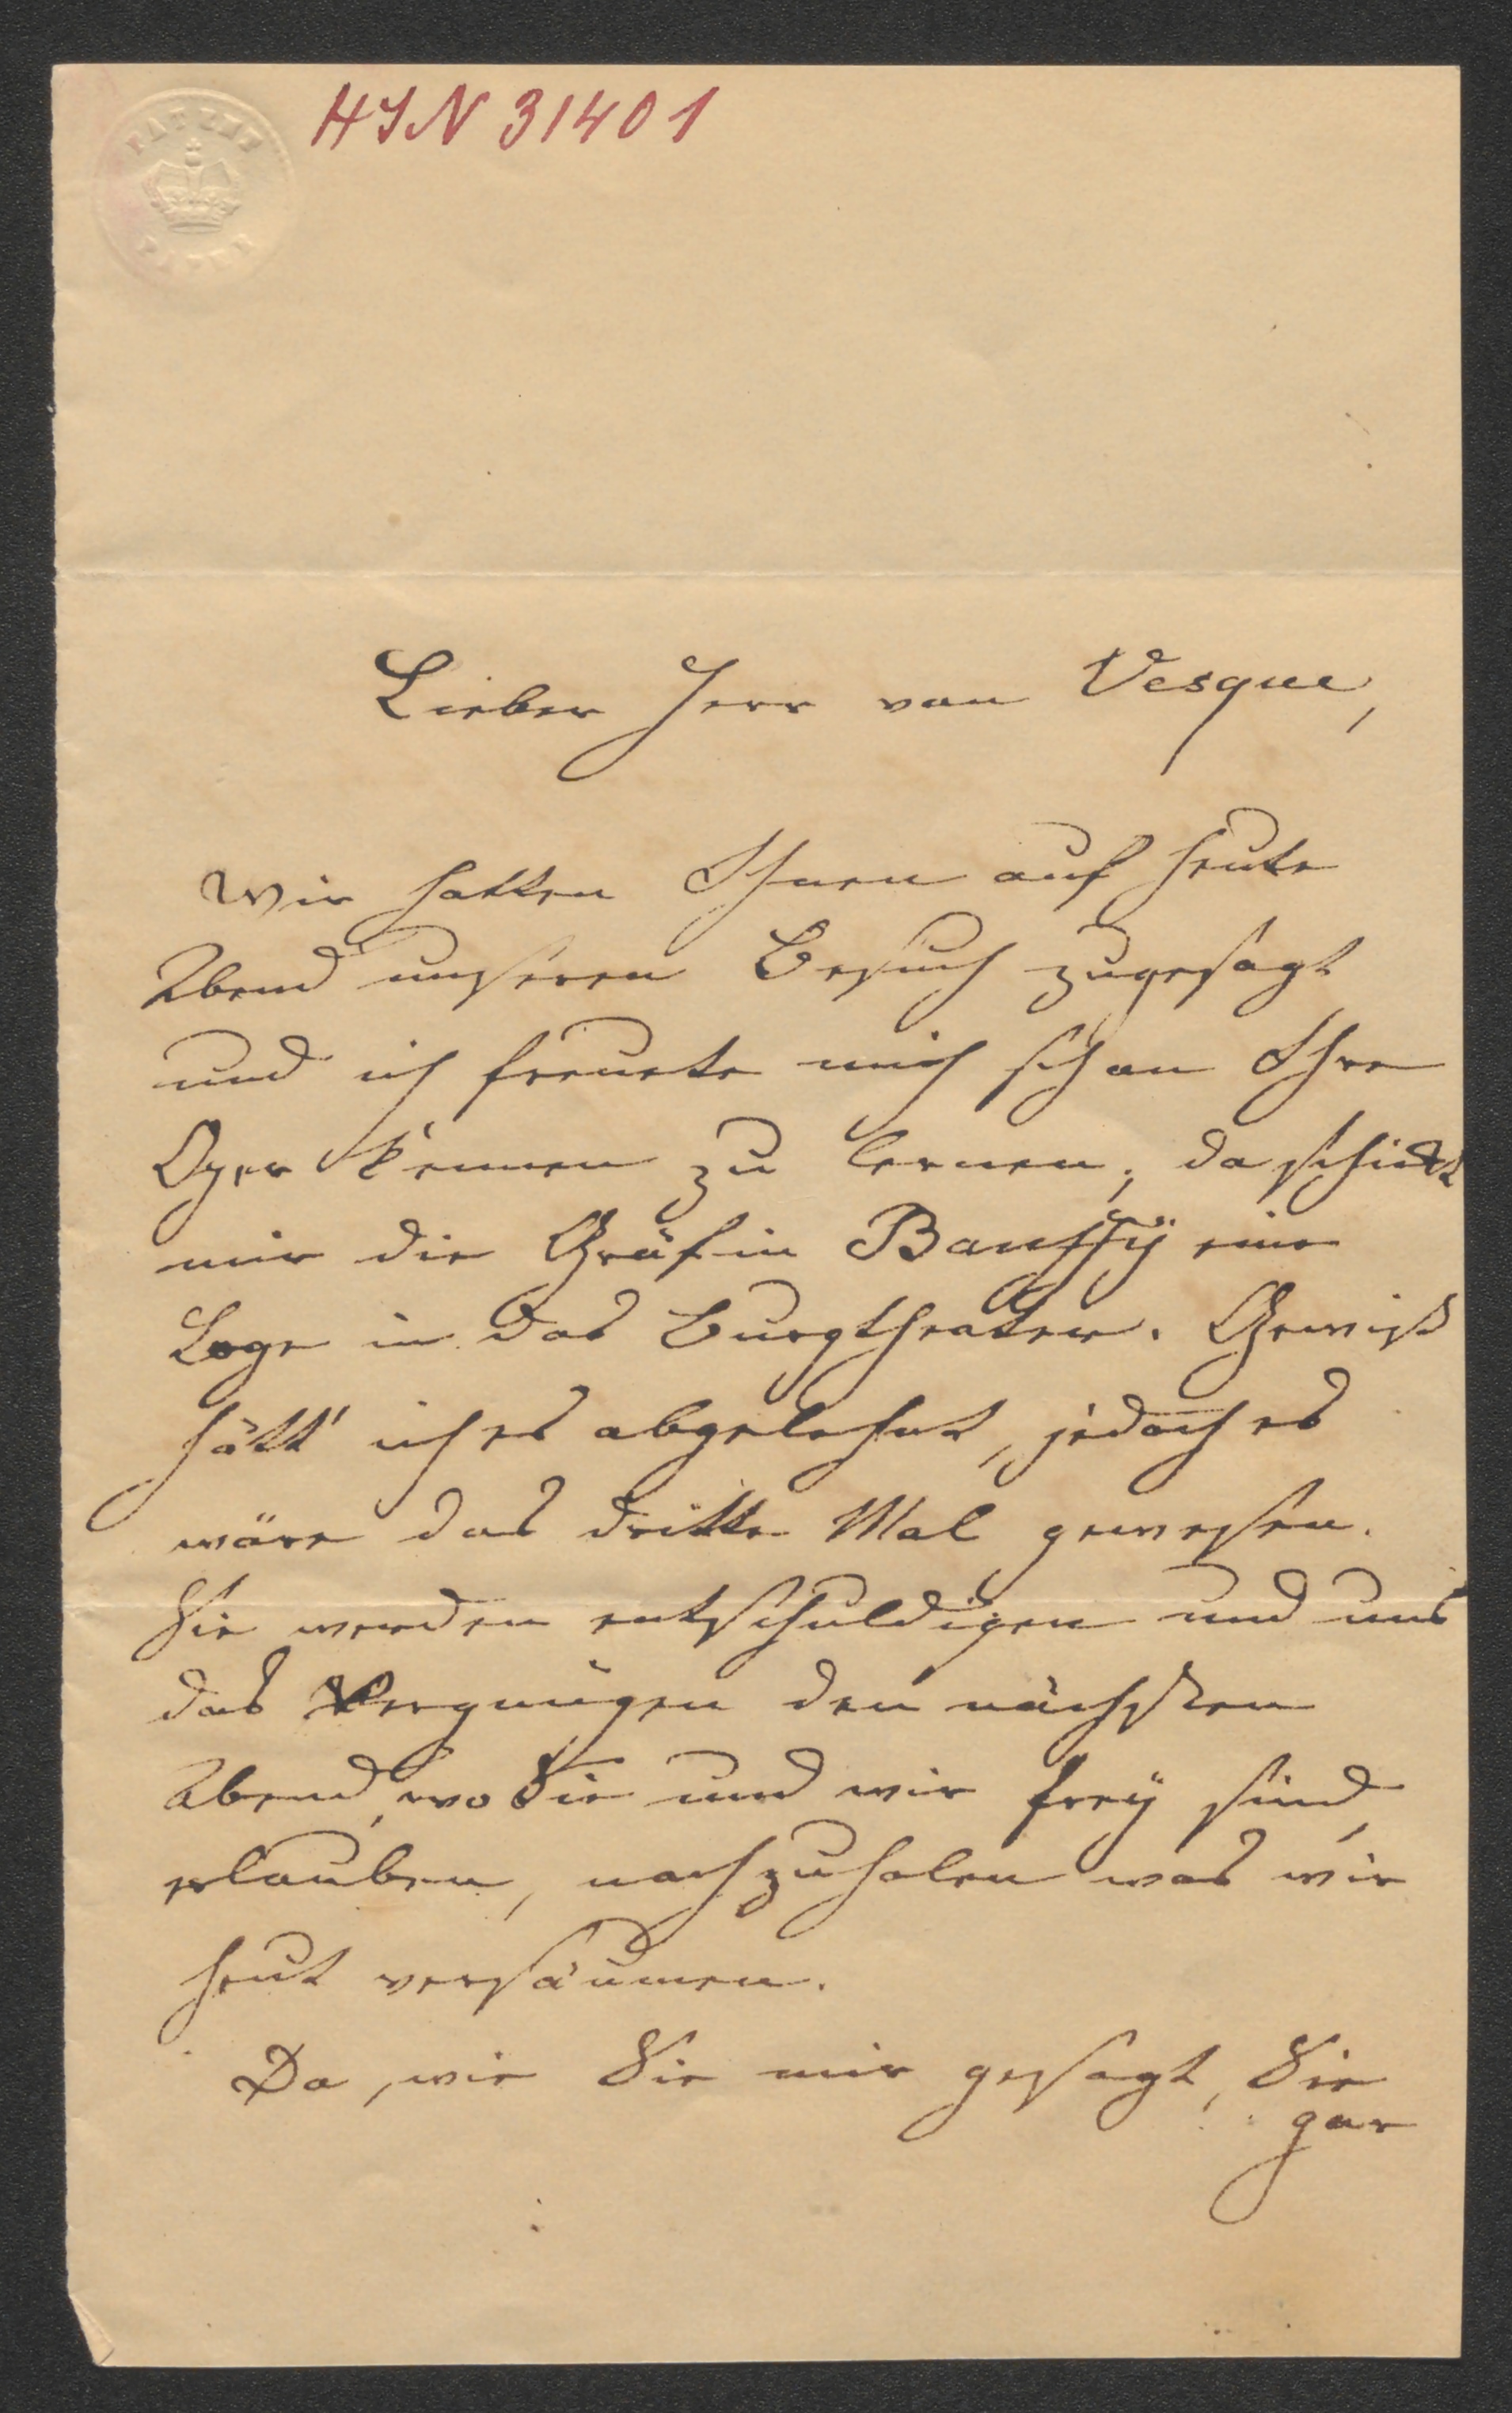 HIN 31401
PATENT
PAPER
Lieber Herr von Vesque,
Wir hatten Ihnen auf heute
Abend unseren Besuch zugesagt
und ich freuete mich schon Ihre
Oper kennen zu lernen, da schickt
mir die Gräfin Banffÿ eine
Loge in das Burgtheater. Gewiß
hätt' ich es abgelehnt, jedoch es
wäre das dritte Mal gewesen.
Sie werden entschuldigen und uns
das Vergnügen den nächsten
Abend, wo Sie und wir freÿ sind,
erlauben, nachzuholen was wir
heut versäumen.
Da, wie Sie mir gesagt, Sie
gar